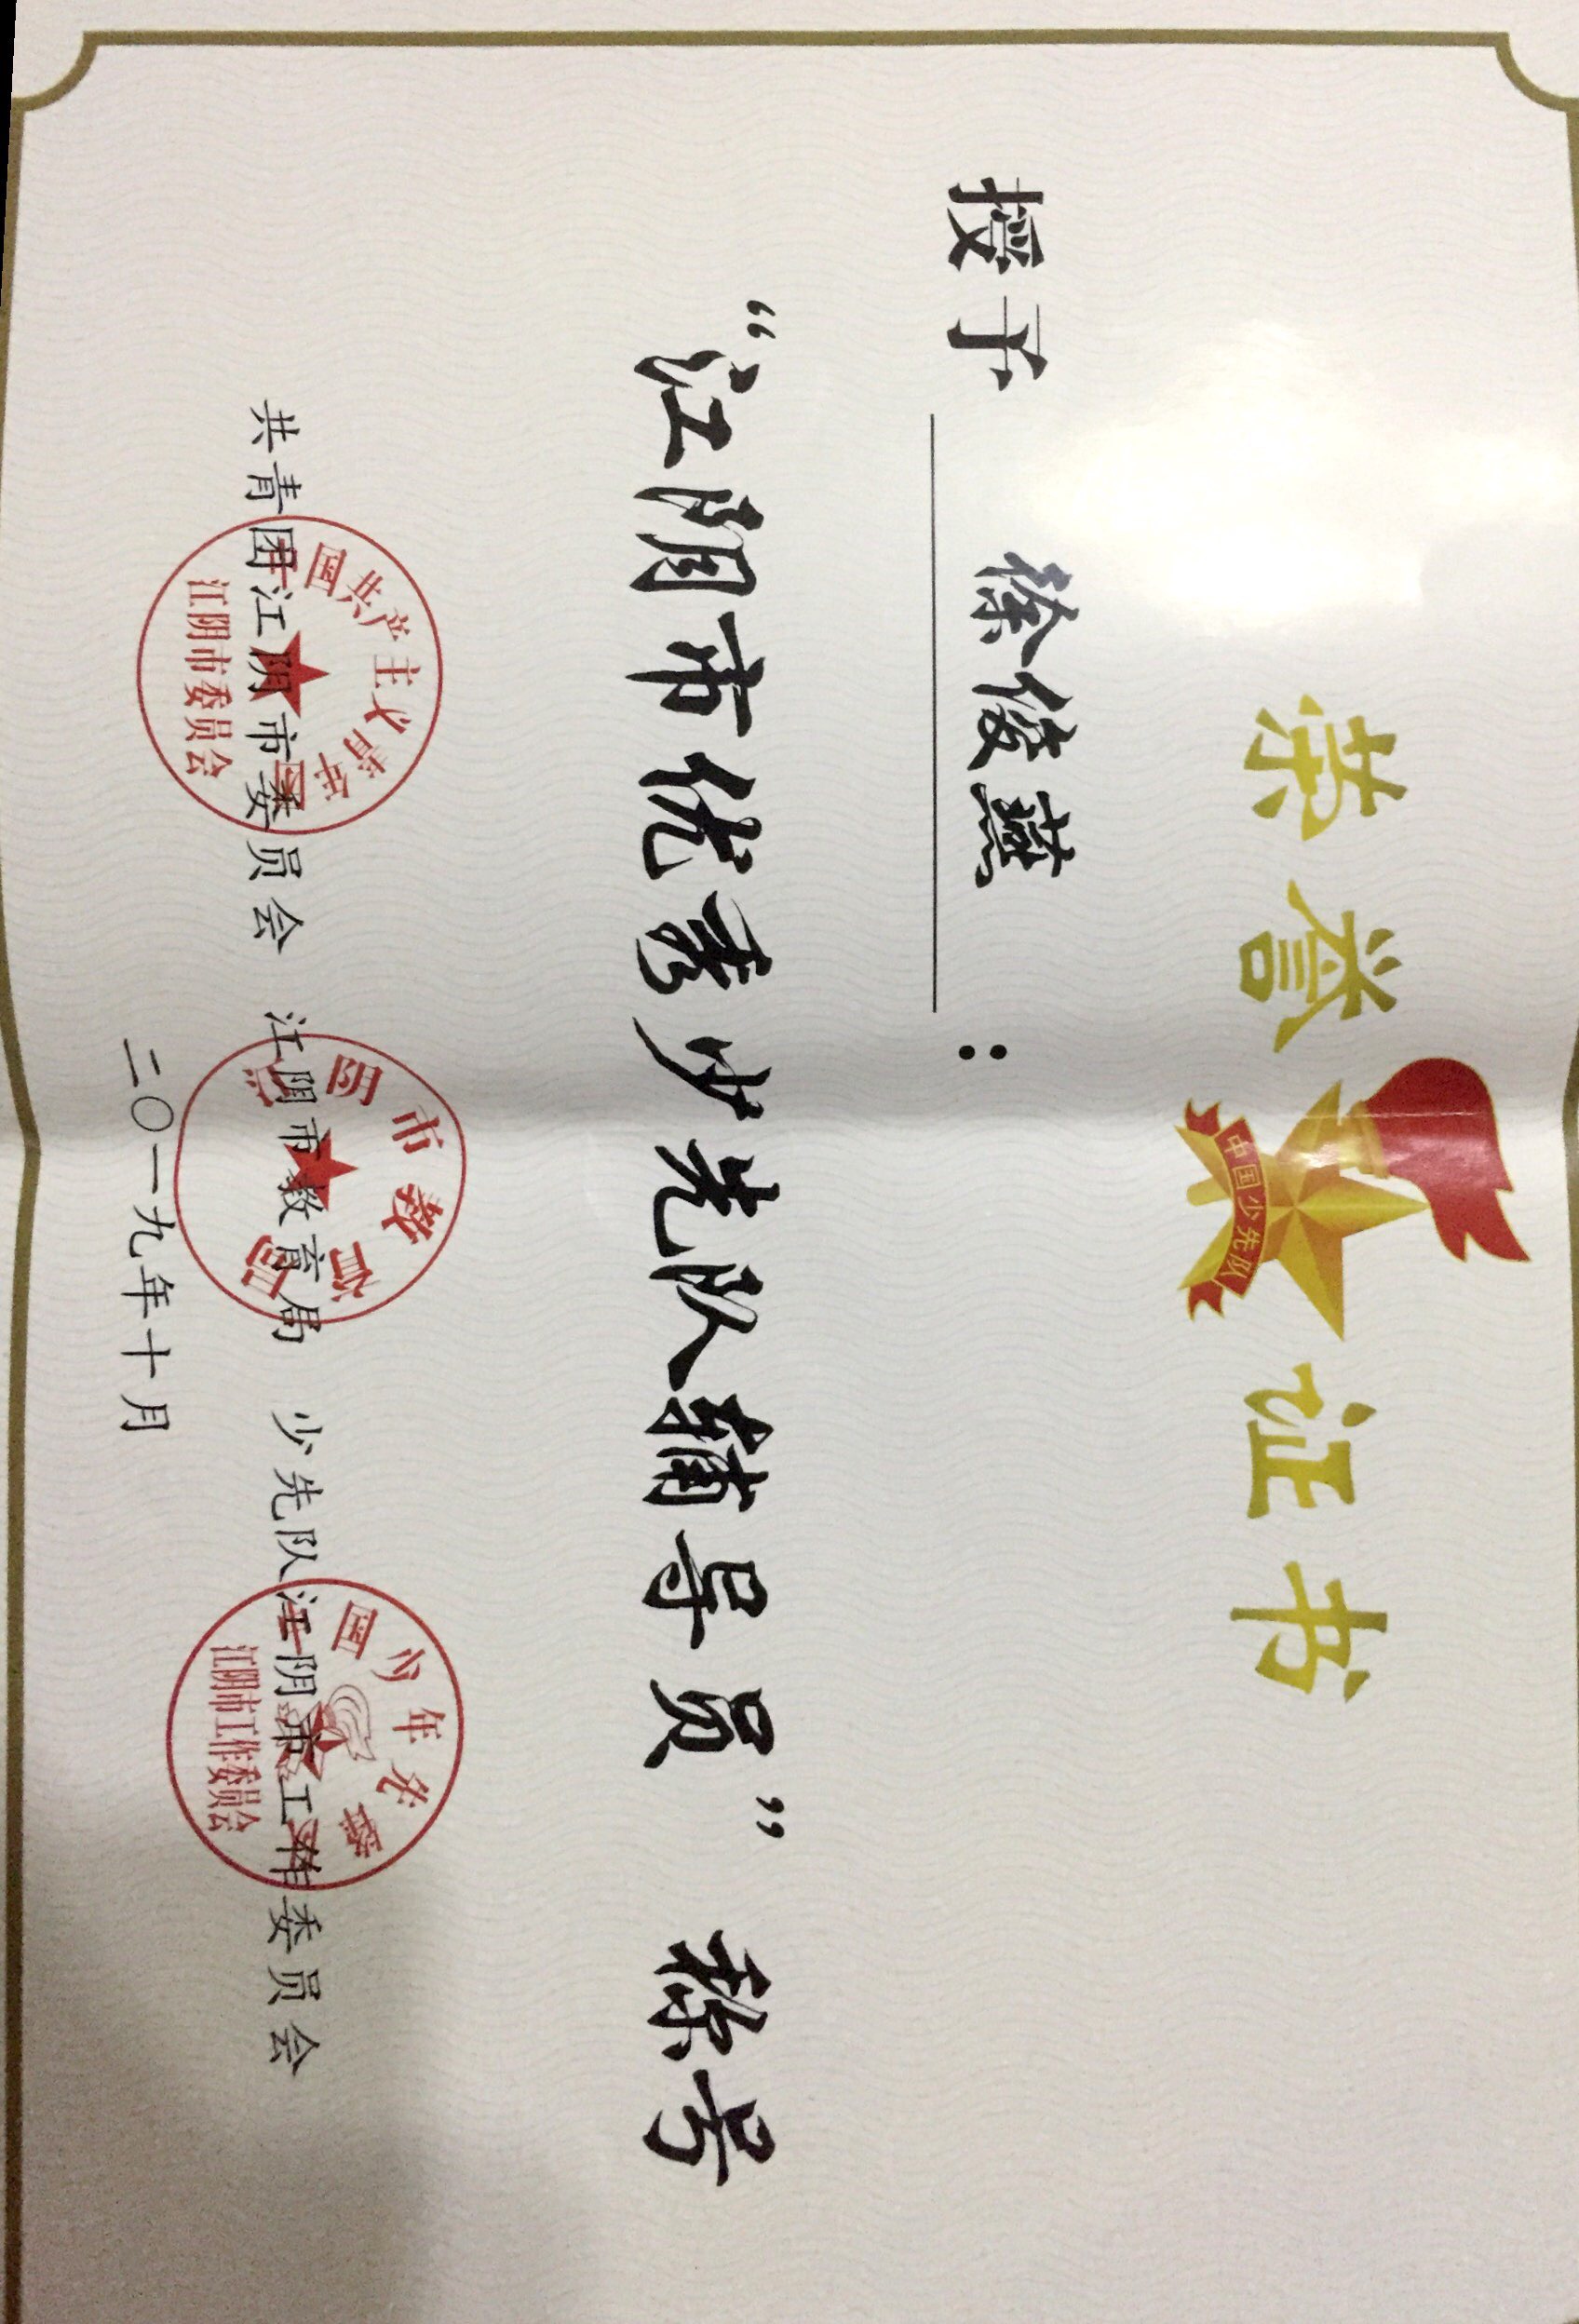 荣誉证书
中国少先队
授予 徐俊燕：
“江阴市优秀少先队辅导员” 称号
共青团江阴市委员会 江阴市教育局 少先队江阴市工作委员会
二〇一九年十月
国共产主义青年团
江阴市委员会
江阴市教育局
国少年先锋
江阴市工作委员会